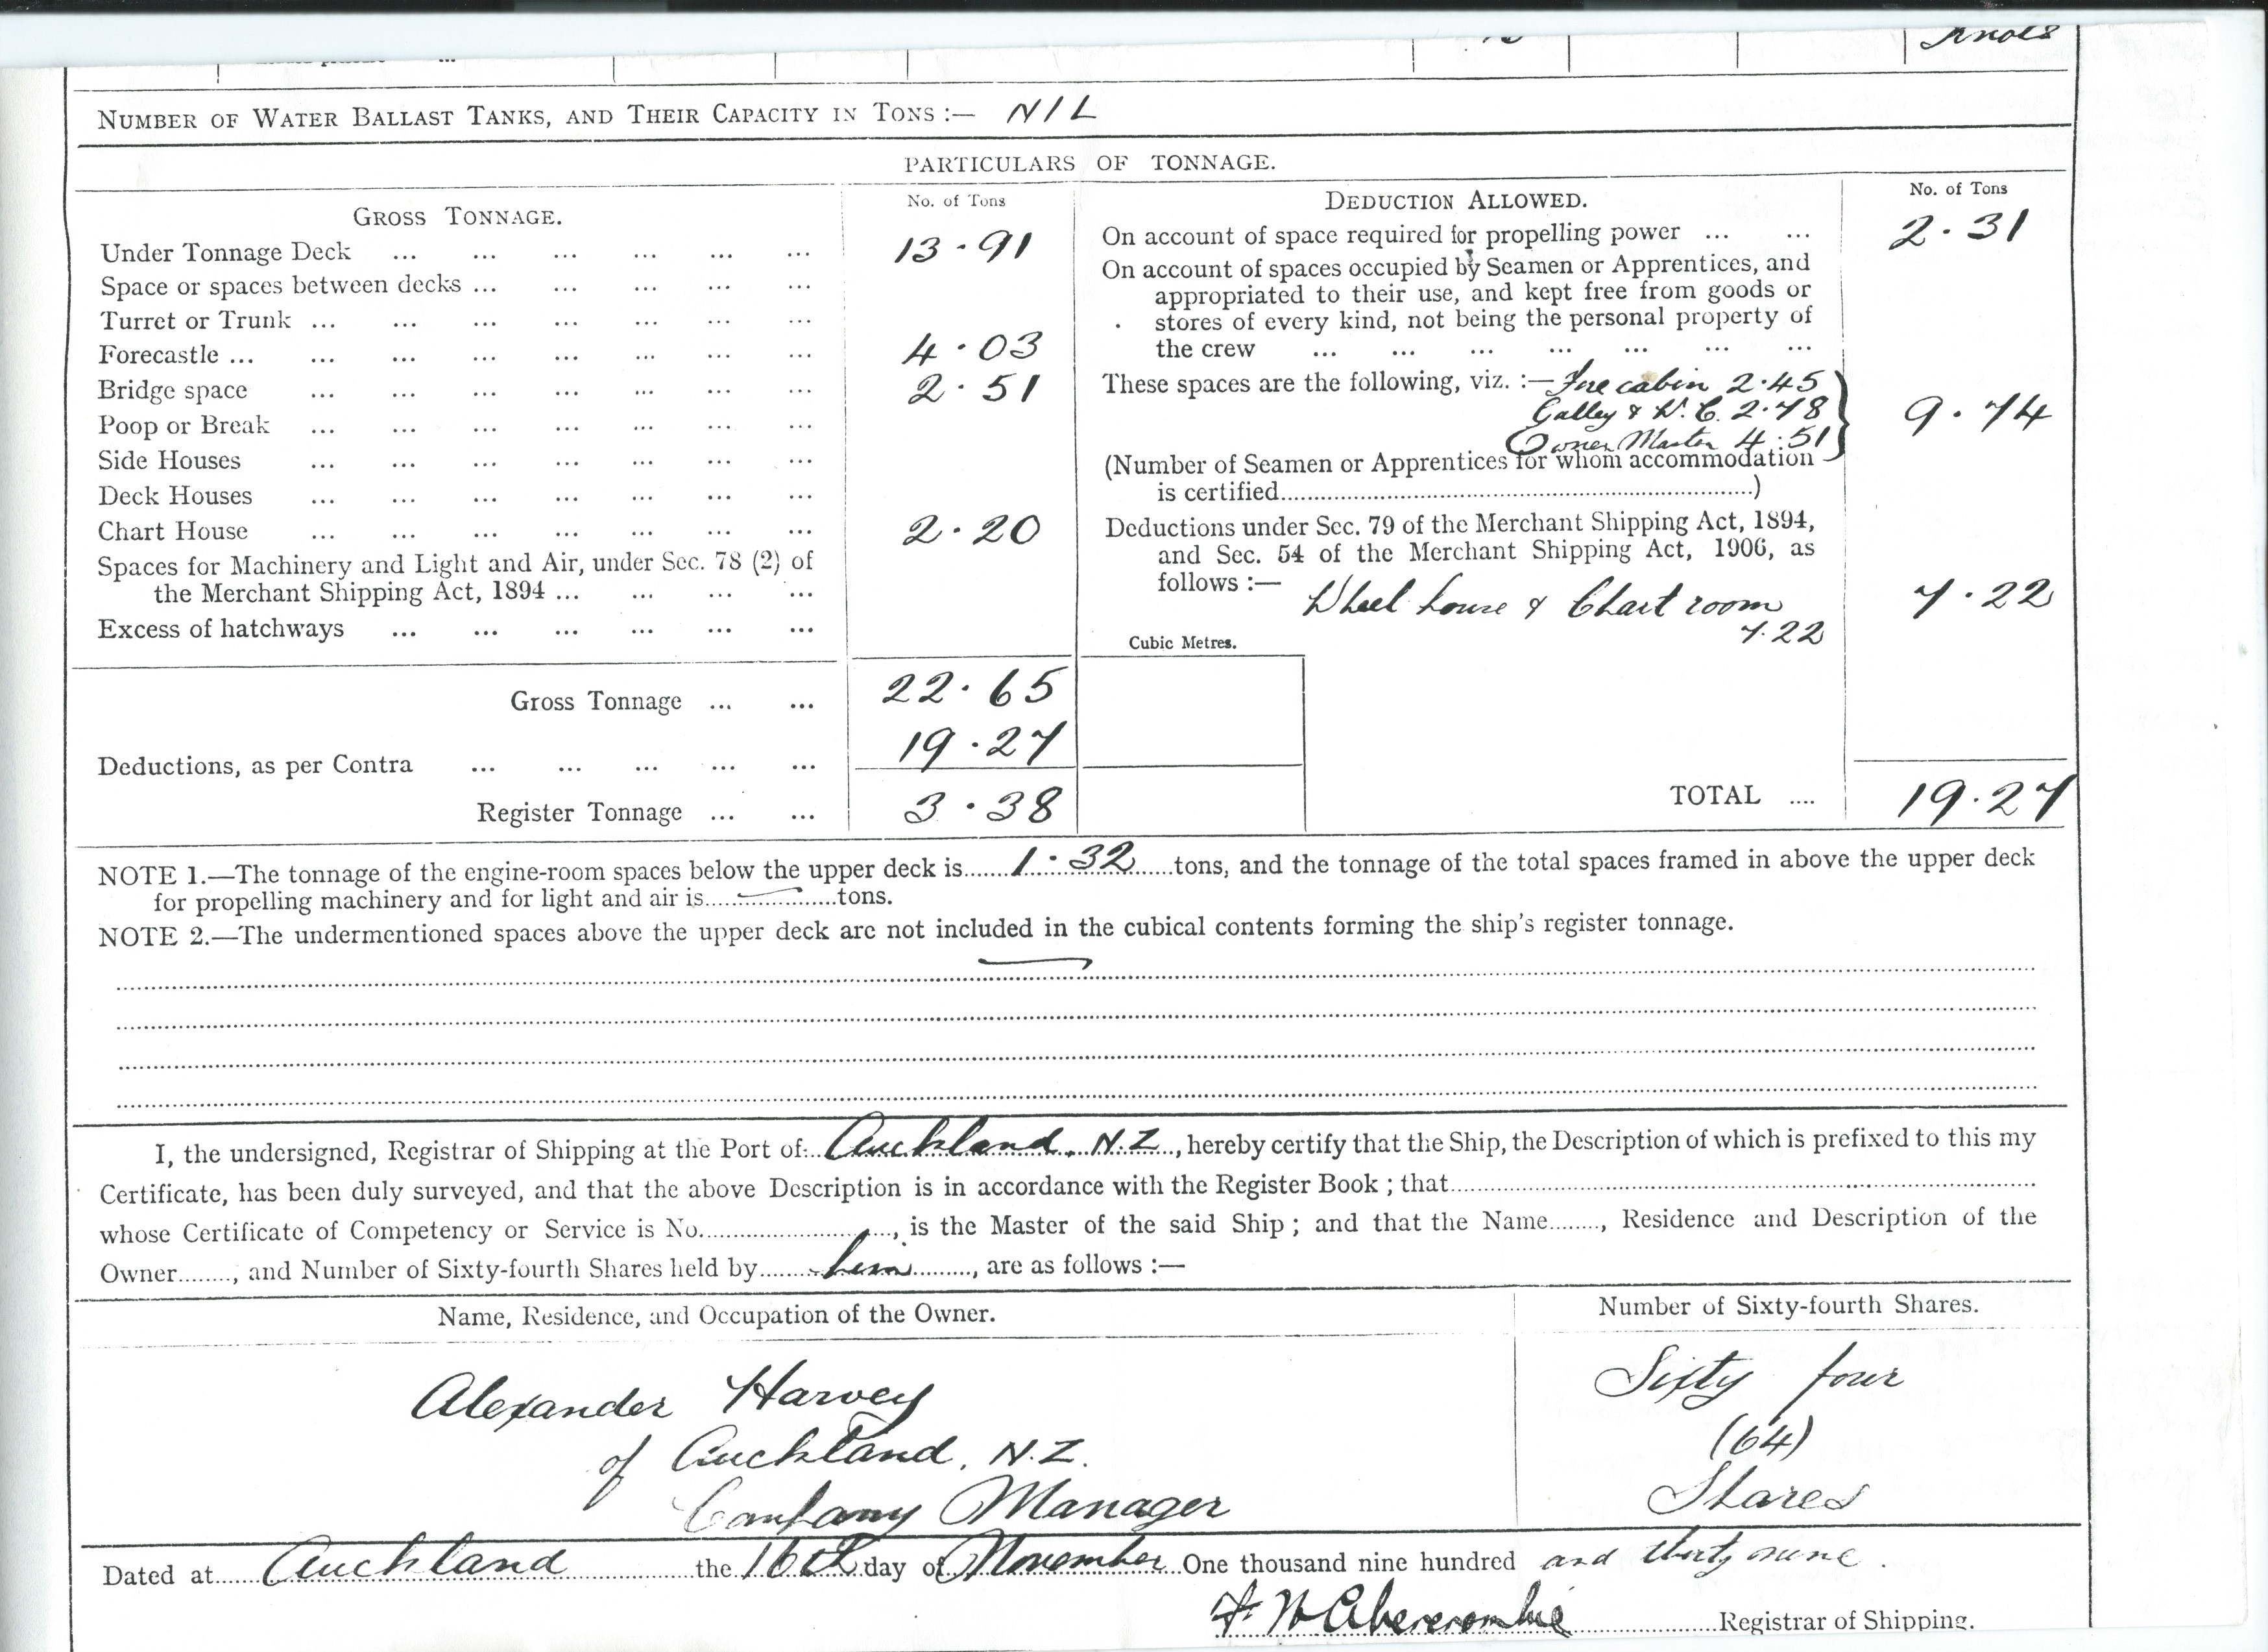 knots
NUMBER OF WATER BALLAST TANKS, AND THEIR CAPACITY IN TONS :— NIL
PARTICULARS OF TONNAGE.
GROSS TONNAGE.
No. of Tons
Under Tonnage Deck ... ... ... ... ... ... 13·91
Space or spaces between decks ... ... ... ... ...
Turret or Trunk ... ... ... ... ... ... ...
Forecastle ... ... ... ... ... ... ... 4·03
Bridge space ... ... ... ... ... ... 2·51
Poop or Break ... ... ... ... ... ...
Side Houses ... ... ... ... ... ...
Deck Houses ... ... ... ... ... ...
Chart House ... ... ... ... ... ... 2·20
Spaces for Machinery and Light and Air, under Sec. 78 (2) of
the Merchant Shipping Act, 1894 ... ... ... ...
Excess of hatchways ... ... ... ... ... ...
Gross Tonnage ... ... 22·65
Deductions, as per Contra ... ... ... ... ... 19·27
Register Tonnage ... ... 3·38
DEDUCTION ALLOWED.
No. of Tons
On account of space required for propelling power ... ... 2·31
On account of spaces occupied by Seamen or Apprentices, and
appropriated to their use, and kept free from goods or
stores of every kind, not being the personal property of
the crew ... ... ... ... ... ... ...
These spaces are the following, viz. :— Fore cabin 2·45
Galley & W.C. 2·78 9·74
Owner Master 4·51
(Number of Seamen or Apprentices for whom accommodation
is certified..........)
Deductions under Sec. 79 of the Merchant Shipping Act, 1894,
and Sec. 54 of the Merchant Shipping Act, 1906, as
follows :— Wheel house & Chart room 7·22
7·22
Cubic Metres.
TOTAL .... 19·27
NOTE 1.—The tonnage of the engine-room spaces below the upper deck is 1·32 tons, and the tonnage of the total spaces framed in above the upper deck
for propelling machinery and for light and air is — tons.
NOTE 2.—The undermentioned spaces above the upper deck are not included in the cubical contents forming the ship's register tonnage.
I, the undersigned, Registrar of Shipping at the Port of Auckland, N.Z., hereby certify that the Ship, the Description of which is prefixed to this my
Certificate, has been duly surveyed, and that the above Description is in accordance with the Register Book ; that..........
whose Certificate of Competency or Service is No.........., is the Master of the said Ship ; and that the Name........, Residence and Description of the
Owner........, and Number of Sixty-fourth Shares held by him, are as follows :—
Name, Residence, and Occupation of the Owner.
Number of Sixty-fourth Shares.
Alexander Harvey
of Auckland, N.Z.
Company Manager
Sixty four
(64)
Shares
Dated at Auckland the 16th day of November One thousand nine hundred and thirty nine.
Abercrombie Registrar of Shipping.